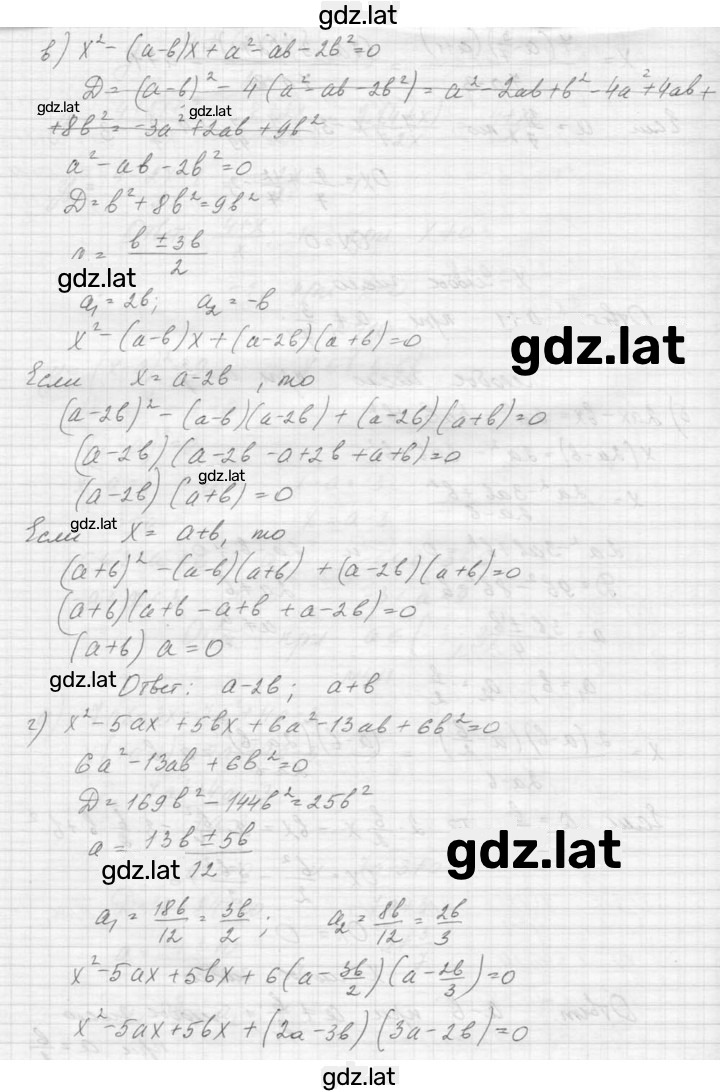 gdz.lat
в) x² - (a-b)x + a² - ab - 2b² = 0
D = (a-b)² - 4(a² - ab - 2b²) = a² - 2ab + b² - 4a² + 4ab +
gdz.lat gdz.lat
+ 8b² = -3a² + 2ab + 9b²
a² - ab - 2b² = 0
D = b² + 8b² = 9b²
= (b ± 3b)/2
gdz.lat
a₁ = 2b; a₂ = -b
x² - (a-b)x + (a-2b)(a+b) = 0
gdz.lat
Если x = a-2b, то
(a-2b)² - (a-b)(a-2b) + (a-2b)(a+b) = 0
(a-2b)(a-2b - a+2b + a+b) = 0
gdz.lat
(a-2b)(a+b) = 0
gdz.lat
Если x = a+b, то
(a+b)² - (a-b)(a+b) + (a-2b)(a+b) = 0
(a+b)(a+b - a+b + a-2b) = 0
(a+b) a = 0
gdz.lat
Ответ: a-2b; a+b
г) x² - 5ax + 5bx + 6a² - 13ab + 6b² = 0
6a² - 13ab + 6b² = 0
D = 169b² - 144b² = 25b²
a = (13b ± 5b)/12
gdz.lat
gdz.lat
a₁ = 18b/12 = 3b/2; a₂ = 8b/12 = 2b/3
x² - 5ax + 5bx + 6(a - 3b/2)(a - 2b/3) = 0
x² - 5ax + 5bx + (2a-3b)(3a-2b) = 0
gdz.lat